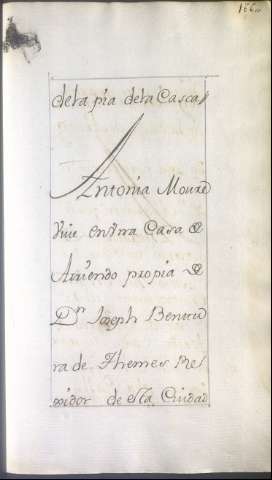 dela pia dela Casca
Antonia Moure
Vive en vna Casa &
Arriendo propia &
Dn Joseph Benttu
ra de Themes Re
xidor de esta Ciudad